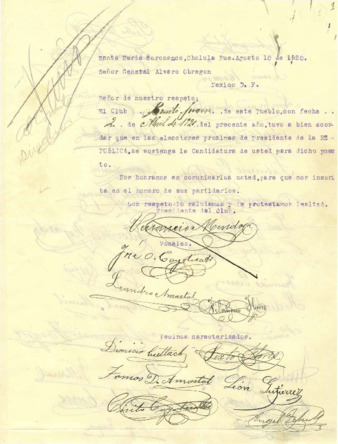 Santa María Coronanco, Cholula Pue. Agosto 10 de 1920.
Señor General Alvaro Obregon
Mexico D. F.
Señor de nuestro respeto:
El Club Benito Juarez de este Pueblo, con fecha
2 de Abril de del presente año, tuvo a bien acor-
dar que en las elecciones proximas de Presidente de la RE-
PÚBLICA, se sostenga la Candidatura de usted para dicho pues-
to.
Nos honramos en comunicarlo a usted, para que nos inscri-
ba en el número de sus partidarios.
Con respeto lo saludamos y le protestamos lealtad.
Presidente del Club.
Mendoza
Vocales.
José O.
Leandro Amastal
Flores
Vecinos caracterizados.
Dionicio Cuellar
Flores
Tomas D. Amostal
León Gutierrez
Angel